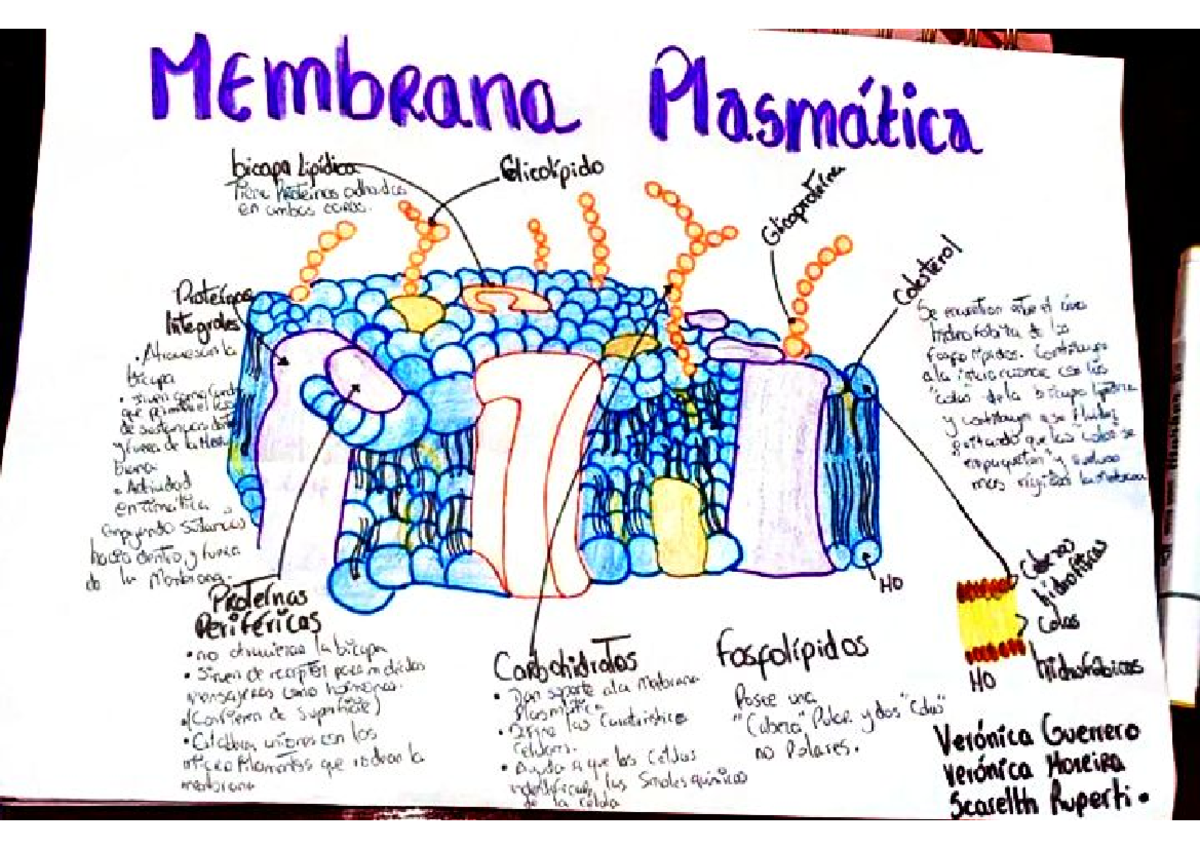 Membrana Plasmática
bicapa Lipídica
Tiene Proteinas adheridas
en ambas caras.
Glicolípido
Glicoproteína
Colesterol
hidrofobita de los
fosfo lípidos. Contribuye
a la interaccione con las
"colas" de la bicapa lipidica
y contribuye a su fluidez
evitando que las colas se
"empaqueten" y vuelva
mas rigida la membrana
Proteínas
Integrales
• Atraviesan la
bicapa
• Sirven como canal
que permite el paso
de sustancias dentro
y fuera de la Mem
brana
• Actividad
enzimática
hacia dentro y fuera
de la Membrana.
Proteínas
Periféricas
• no atraviesan la bicapa
• Sirven de receptor para moléculas
mensajeras como hormonas.
• Establecen uniones con los
microfilamentos que rodean la
membrana
Carbohidratos
• Dan soporte a la Membrana
Plasmática
• Define las Caracteristica
Celulares.
• Ayuda a que las Celulas
identifiquen las señales químicas
de la célula
Fosfolípidos
Posee una
"Cabeza" Polar y dos "Colas"
no Polares.
HO
Cabezas
hidrofílicas
Colas
hidrofóbicas
HO
Verónica Guerrero
Verónica Moreira
Scarelth Ruperti.